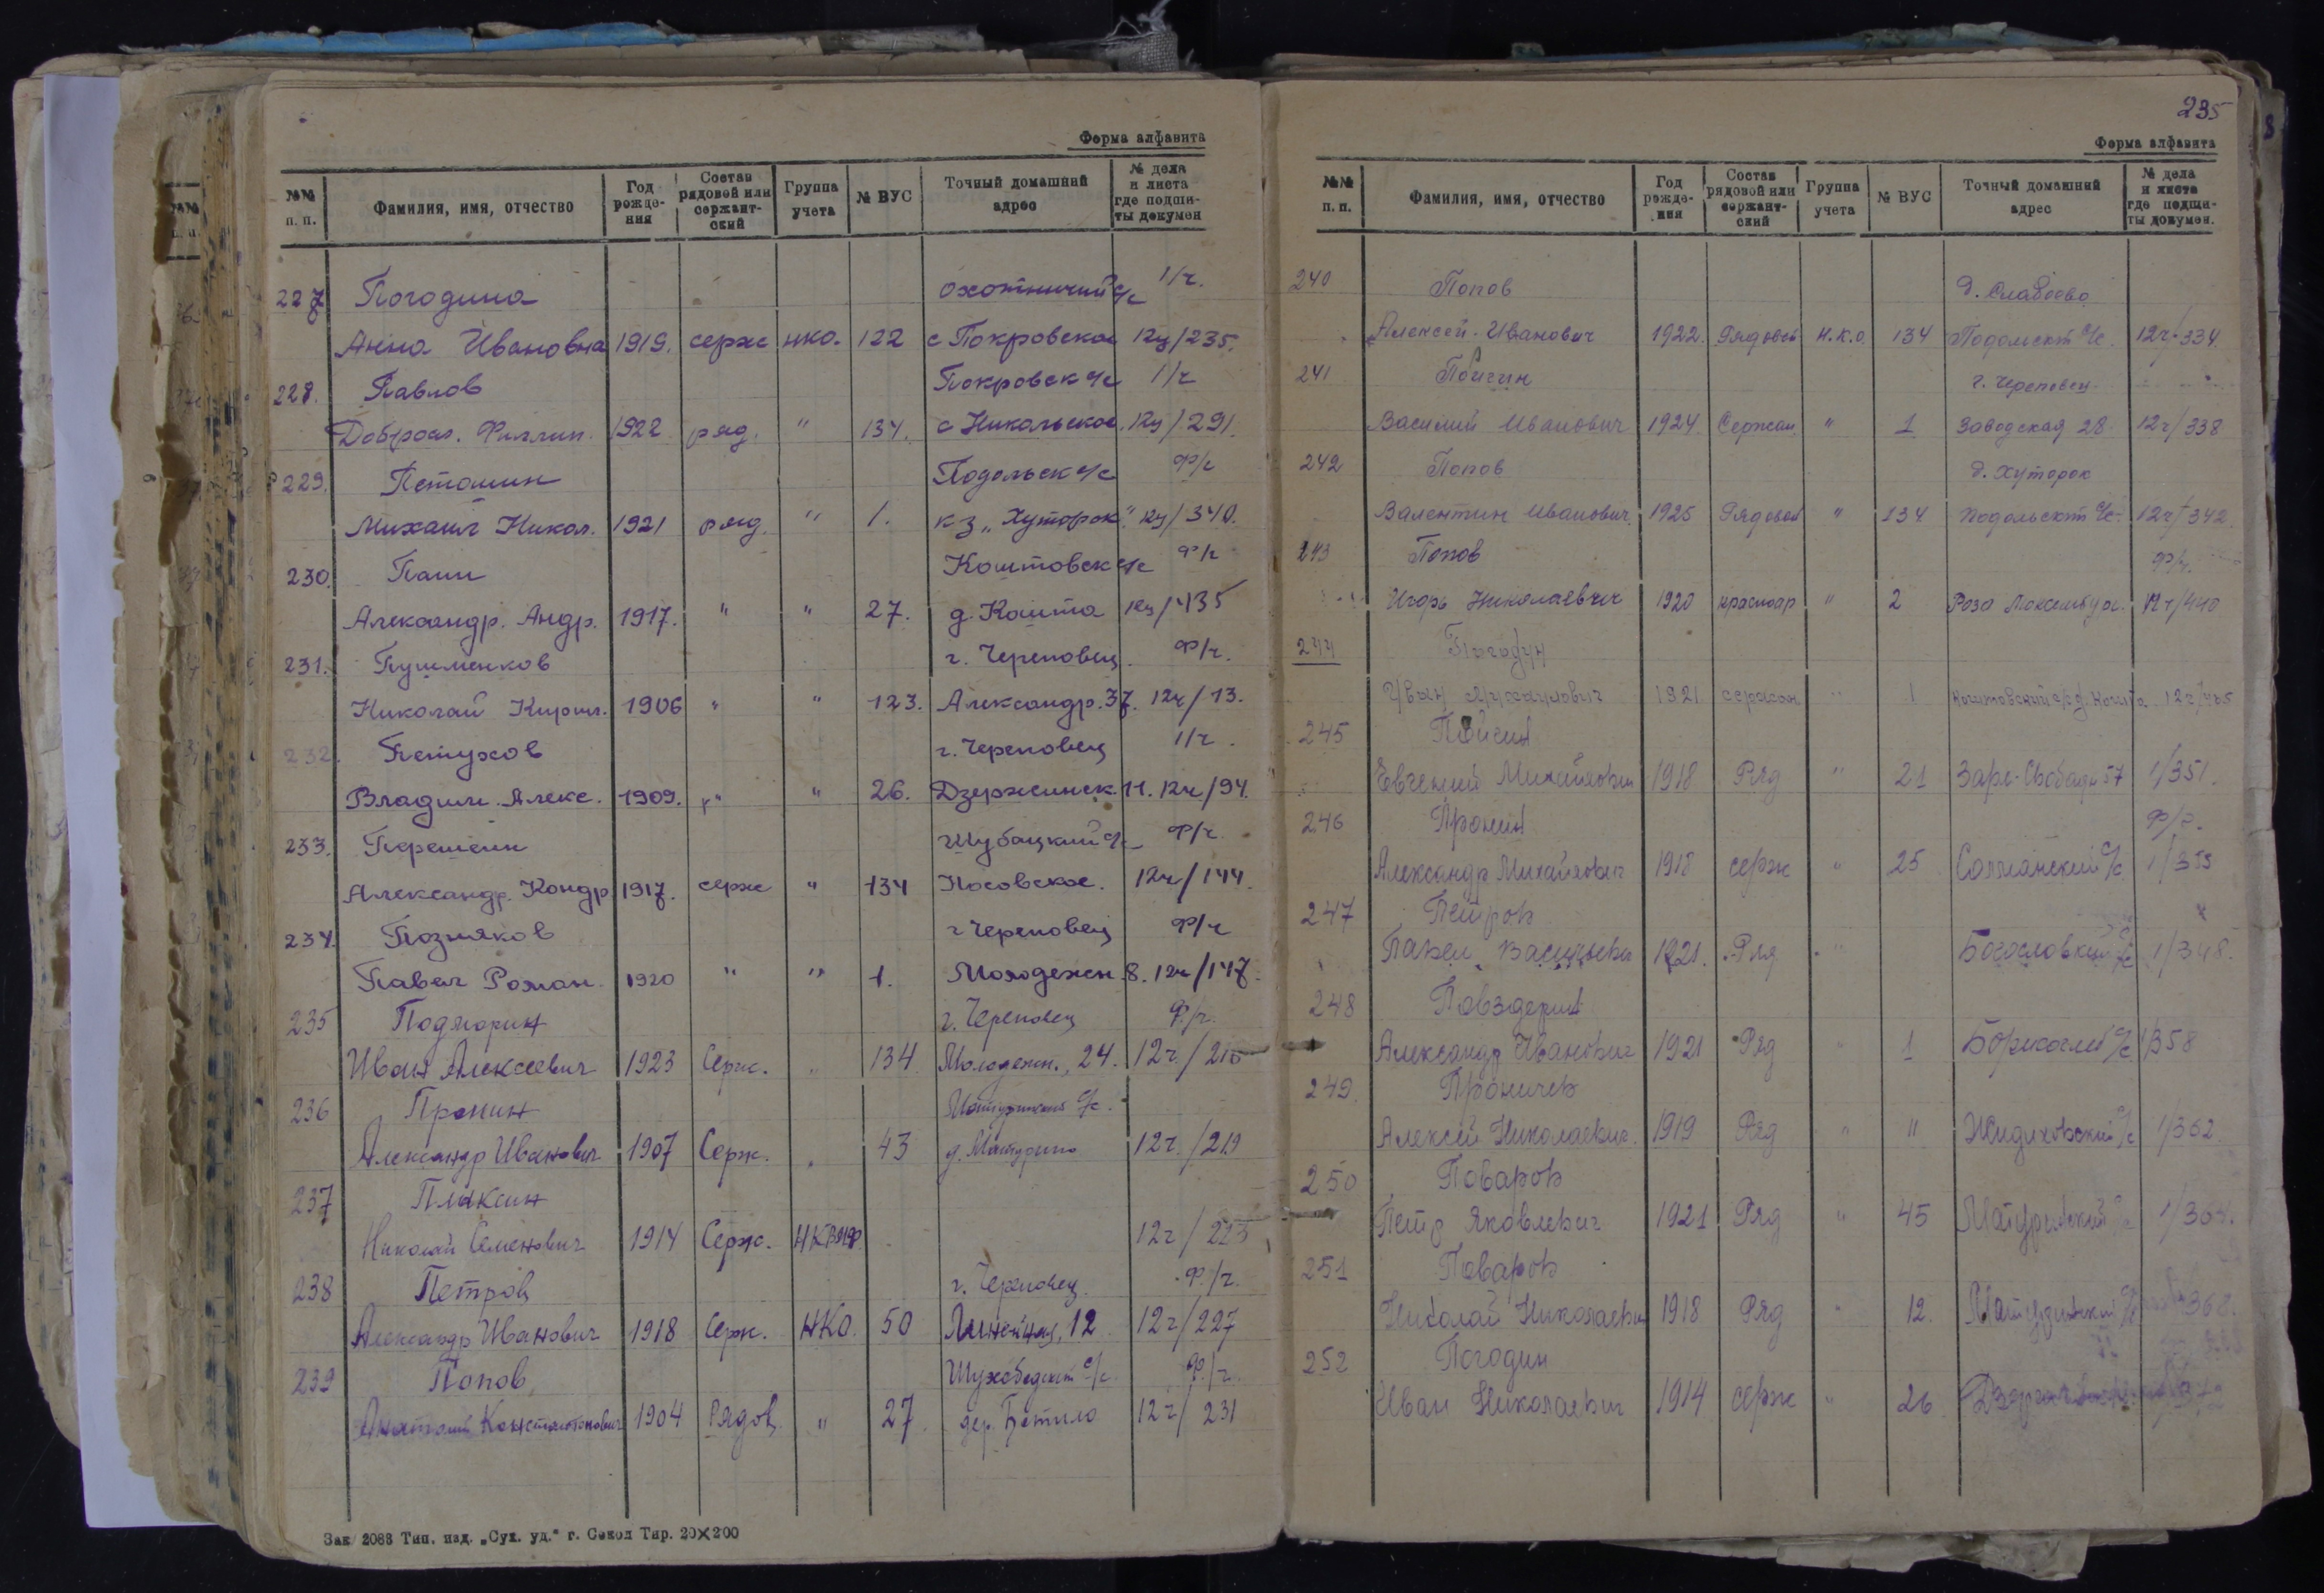 Форма алфавита
№№ п. п. Фамилия, имя, отчество Год рожде-ния Состав рядовой или сержант-ский Группа учета № ВУС Точный домашний адрес № дела и листа где подши-ты докумен
227 Погодина охотничий с/с 1/ч.
Анна Ивановна 1919. серж нко. 122 с Покровское 12ч/235.
228. Павлов Покровск с/с 1/ч
Доброс. Филлип. 1922 ряд. " 134. с Никольское 12ч/291.
229. Петошин Подольск с/с Ф/ч
Михаил Никол. 1921 ряд. " 1. к-з „Хуторок" 12ч/340.
230. Паши Коштовск с/с Ф/ч
Александр. Андр. 1917. " " 27. д. Кошта 12ч/435
231. Пушменков г. Череповец. Ф/ч.
Николай Кирил. 1906 " " 123. Александр. 37. 12ч/13.
232. Петухов г. Череповец 1/ч.
Владим. Алекс. 1909. " " 26. Дзержинск. 11. 12ч/94.
233. Перешеин Шубацкий с/с Ф/ч.
Александр. Кондр 1917. серж " 134 Носовское. 12ч/144.
234. Позняков г Череповец Ф/ч
Павел Роман. 1920 " " 1. Молодежн. 8. 12ч/147.
235 Подгорин г. Череповец Ф/ч.
Иван Алексеевич 1923 Серж. " 134 Молодежн., 24. 12ч/216
236 Пронин Матуринский с/с.
Александр Иванович 1907 Серж. " 43 д. Матурино 12ч./219
237 Плаксин
Николай Семенович 1914 Серж. НКВМФ. 12ч/223
238 Петров г. Череповец. Ф./ч.
Александр Иванович 1918 Серж. НКО. 50 Линейная, 12 12ч/227
239 Попов с/с. Ф./ч.
Анатолий Константинович 1904 Рядов. " 27. дер. 12ч/231
Зак 2068 Тип. изд. „Сух. уд." г. Сокол Тир. 20X200
235
Форма алфавита
№№ п. п. Фамилия, имя, отчество Год рожде-ния Состав рядовой или сержант-ский Группа учета № ВУС Точный домашний адрес № дела и листа где подши-ты докумен.
240 Попов
Алексей Иванович 1922. Рядовой Н.К.О. 134 Подольский с/с. 12ч/334.
241 г. Череповец.
Василий Иванович 1924. Сержан. " 1 Заводская 28. 12ч/338
242 Попов д. Хуторок
Валентин Иванович. 1925 Рядовой " 134 Подольский с/с. 12ч/342.
243 Попов Ф/ч.
Игорь Николаевич 1920 " 2 12ч/440
244 Погодин
Иван Михаилович 1921 сержан " 1 Коштовский с/с д. Кошта 12ч/465
245
Евгений Михайлович 1918 Ряд " 21 57 1/351.
246 Пронин Ф/ч.
Александр Михайлович 1918 серж " 25 с/с 1/355
247 Петров
Павел Васильевич 1921. Ряд " Богословский с/с 1/348.
248 Повздерин
Александр Иванович 1921 Ряд " 1 с/с 1/358
249. Проничев
Алексей Николаевич. 1919 Ряд " " Жидиховский с/с 1/362
250 Поваров
Петр Яковлевич 1921 Ряд " 45 Матуринский с/с 1/364.
251 Поваров
Николай Николаевич 1918 Ряд " 12. Матуринский с/с 368.
252 Погодин
Иван Николаевич 1914 серж " 26